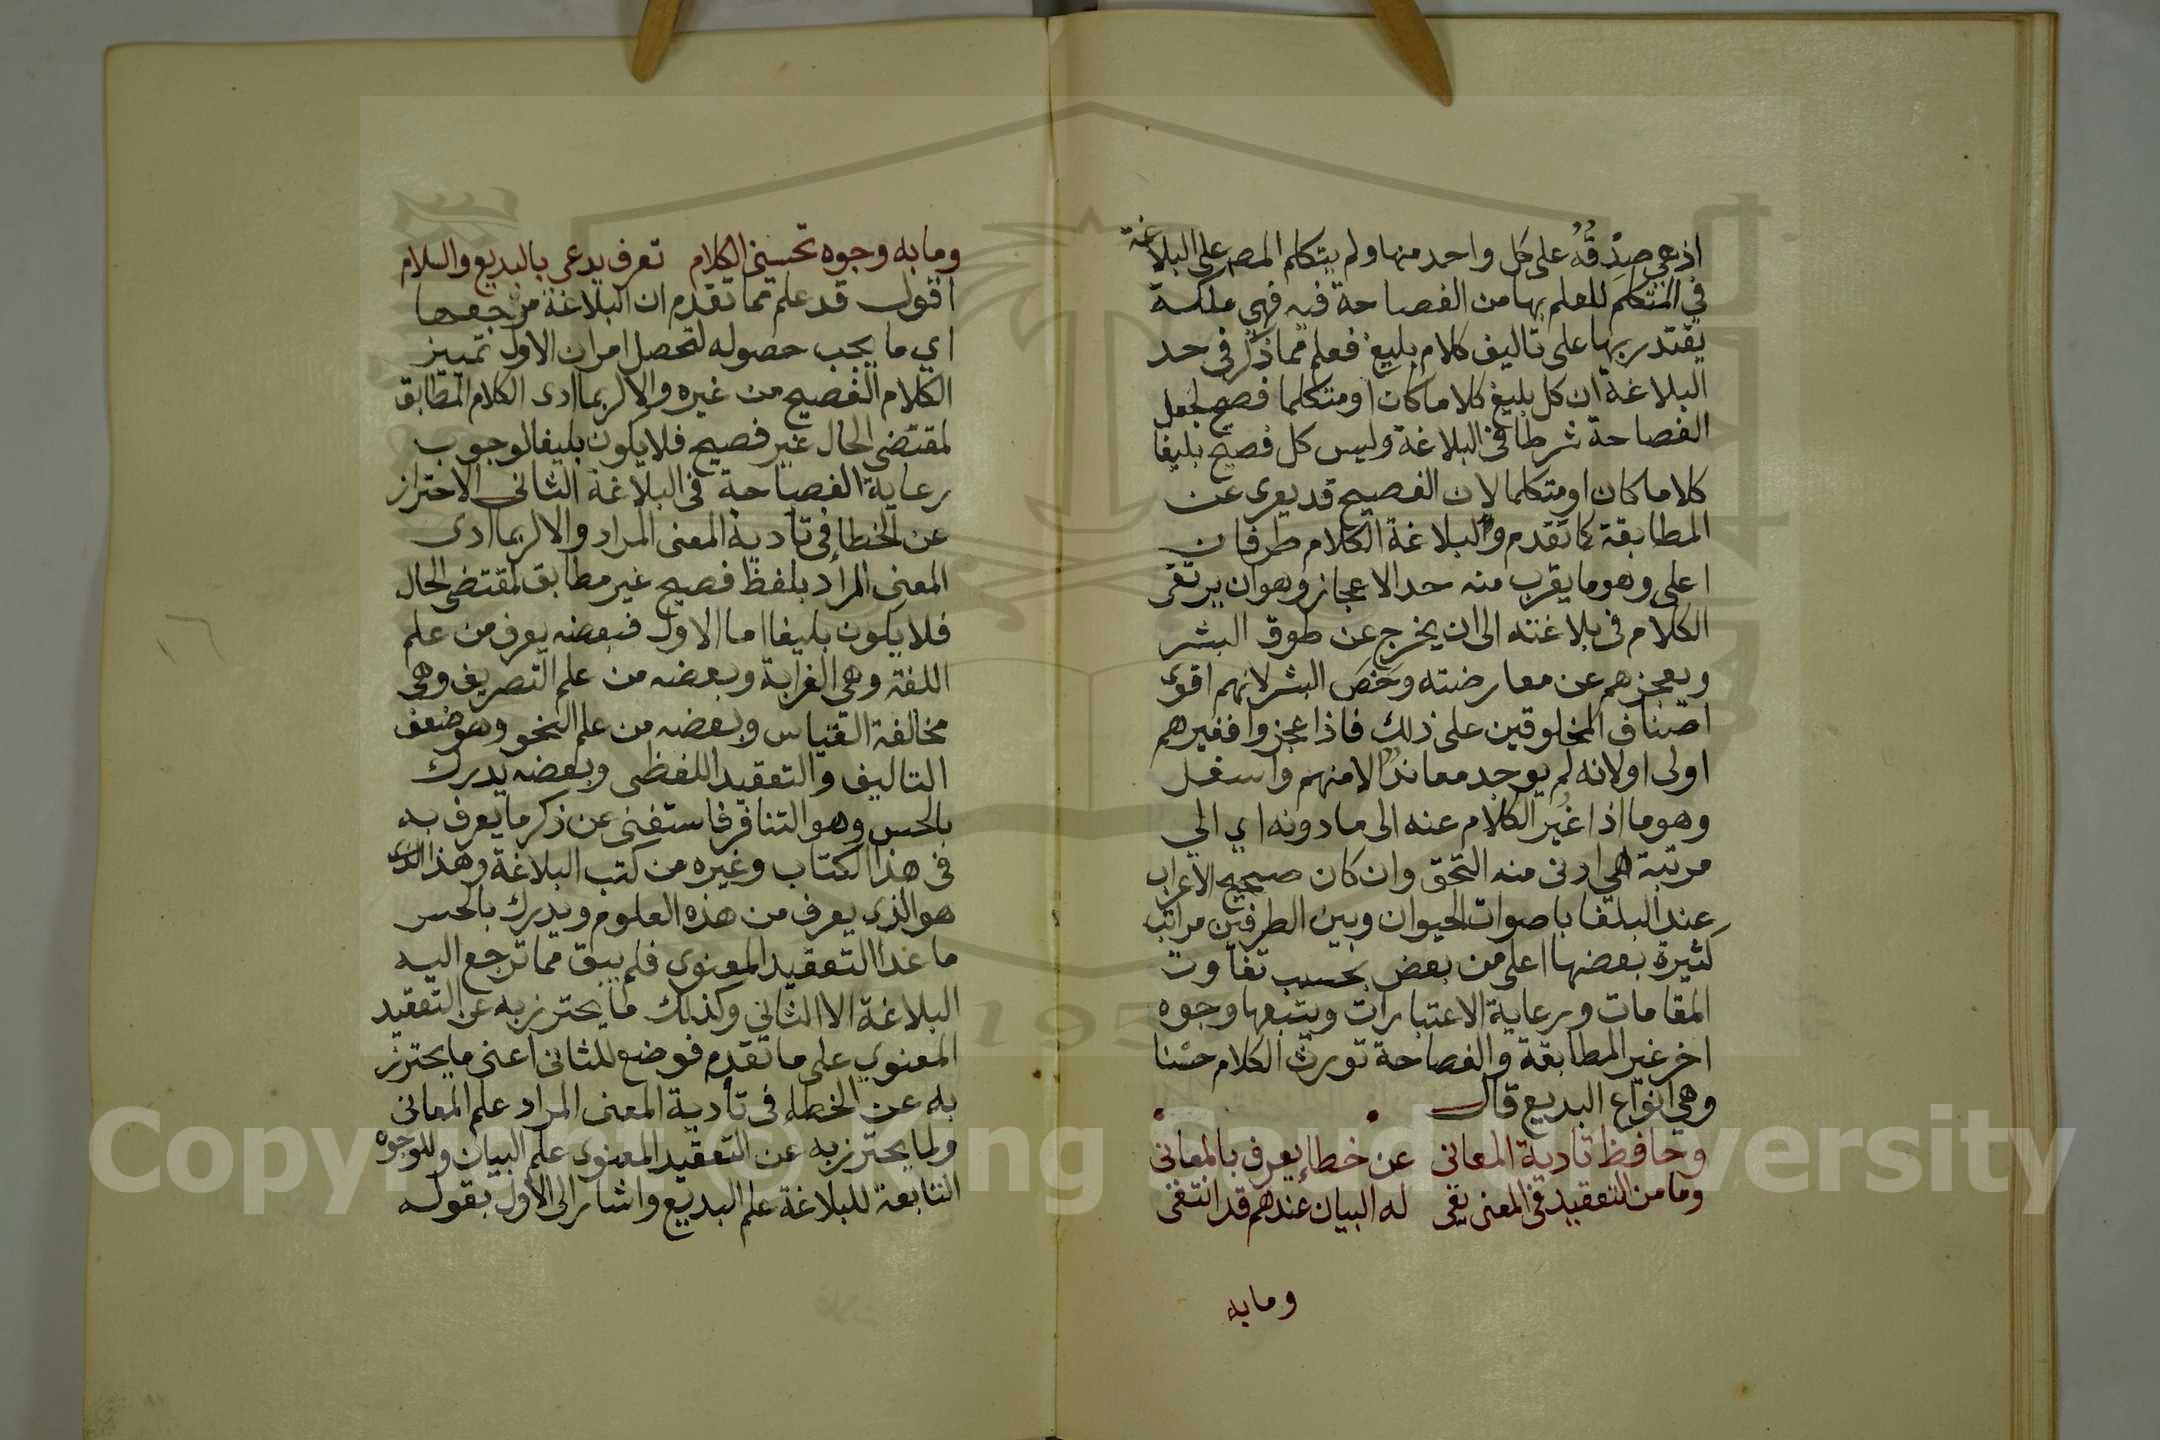 اذ هي صِدْقُهُ على كل واحد منها ولم يتكلم المص على البلاغة
في المتكلم للعلم بها من الفصاحة فيه فهي ملكة
يقتدر بها على تاليف كلام بليغ فعلم مما ذكر في حد
البلاغة ان كل بليغ كلاما كان او متكلما فصيح لجعل
الفصاحة شرطا في البلاغة وليس كل فصيح بليغا
كلاما كان او متكلما لان الفصيح قد يعرى عن
المطابقة كما تقدم والبلاغة الكلام طرفان
اعلى وهو ما يقرب منه حد الاعجاز وهو ان يرتقى
الكلام في بلاغته الى ان يخرج عن طوق البشر
ويعجزهم عن معارضته وخص البشر لانهم اقوى
اصناف المخلوقين على ذلك فاذا عجزوا فغيرهم
اولى او لانه لم يوجد معاندٌ الا منهم واسفل
وهو ما اذا غُير الكلام عنه الى ما دونه اي الي
مرتبة هي ادنى منه التحق وان كان صحيح الاعراب
عند البلغا باصوات الحيوان وبين الطرفين مراتب
كثيرة بعضها اعلى من بعض بحسب تفاوت
المقامات ورعاية الاعتبارات ويتبعها وجوه
اخر غير المطابقة والفصاحة تورث الكلام حسْنا
وهي انواع البديع قال
وحافظ تادية المعاني عن خطاء يعرف بالمعاني
وما من التعقيد في المعنى يقى له البيان عندهم قد انتقى
وما به
وما به وجوه تحسين الكلام تعرف يدعى بالبديع والسلام
اقول قد علم مما تقدم ان البلاغة مرجعها
اي ما يجب حصوله لتحصل امران الاول تمييز
الكلام الفصيح من غيره والا لربما ادى الكلام المطابق
لمقتضى الحال غير فصيح فلا يكون بليغا لوجوب
رعاية الفصاحة في البلاغة الثاني الاحتراز
عن الخطا في تادية المعنى المراد والا لربما ادى
المعنى المراد بلفظ فصيح غير مطابق لمقتضى الحال
فلا يكون بليغا اما الاول فبعضه يعرف من علم
اللغة وهي الغرابة وبعضه من علم التصريف وهي
مخالفة القياس وبعضه من علم النحو وهو ضعف
التاليف والتعقيد اللفظى وبعضه يدرك
بالحس وهو التنافر فاستغنى عن ذكر ما يعرف به
في هذا الكتاب وغيره من كتب البلاغة وهذا الذى
هو الذي يعرف من هذه العلوم ويدرك بالحس
ما عدا التعقيد المعنوى فلم يبق مما ترجع اليه
البلاغة الا الثاني وكذلك ما يحترز به عن التعقيد
المعنوي على ما تقدم فوضع للثانى اعنى ما يحترز
به عن الخطاء في تأدية المعنى المراد علم المعانى
ولما يحترز به عن التعقيد المعنوى علم البيان وللوجوه
التابعة للبلاغة علم البديع واشار الى الاول بقوله
1957
Copyright © King Saud University